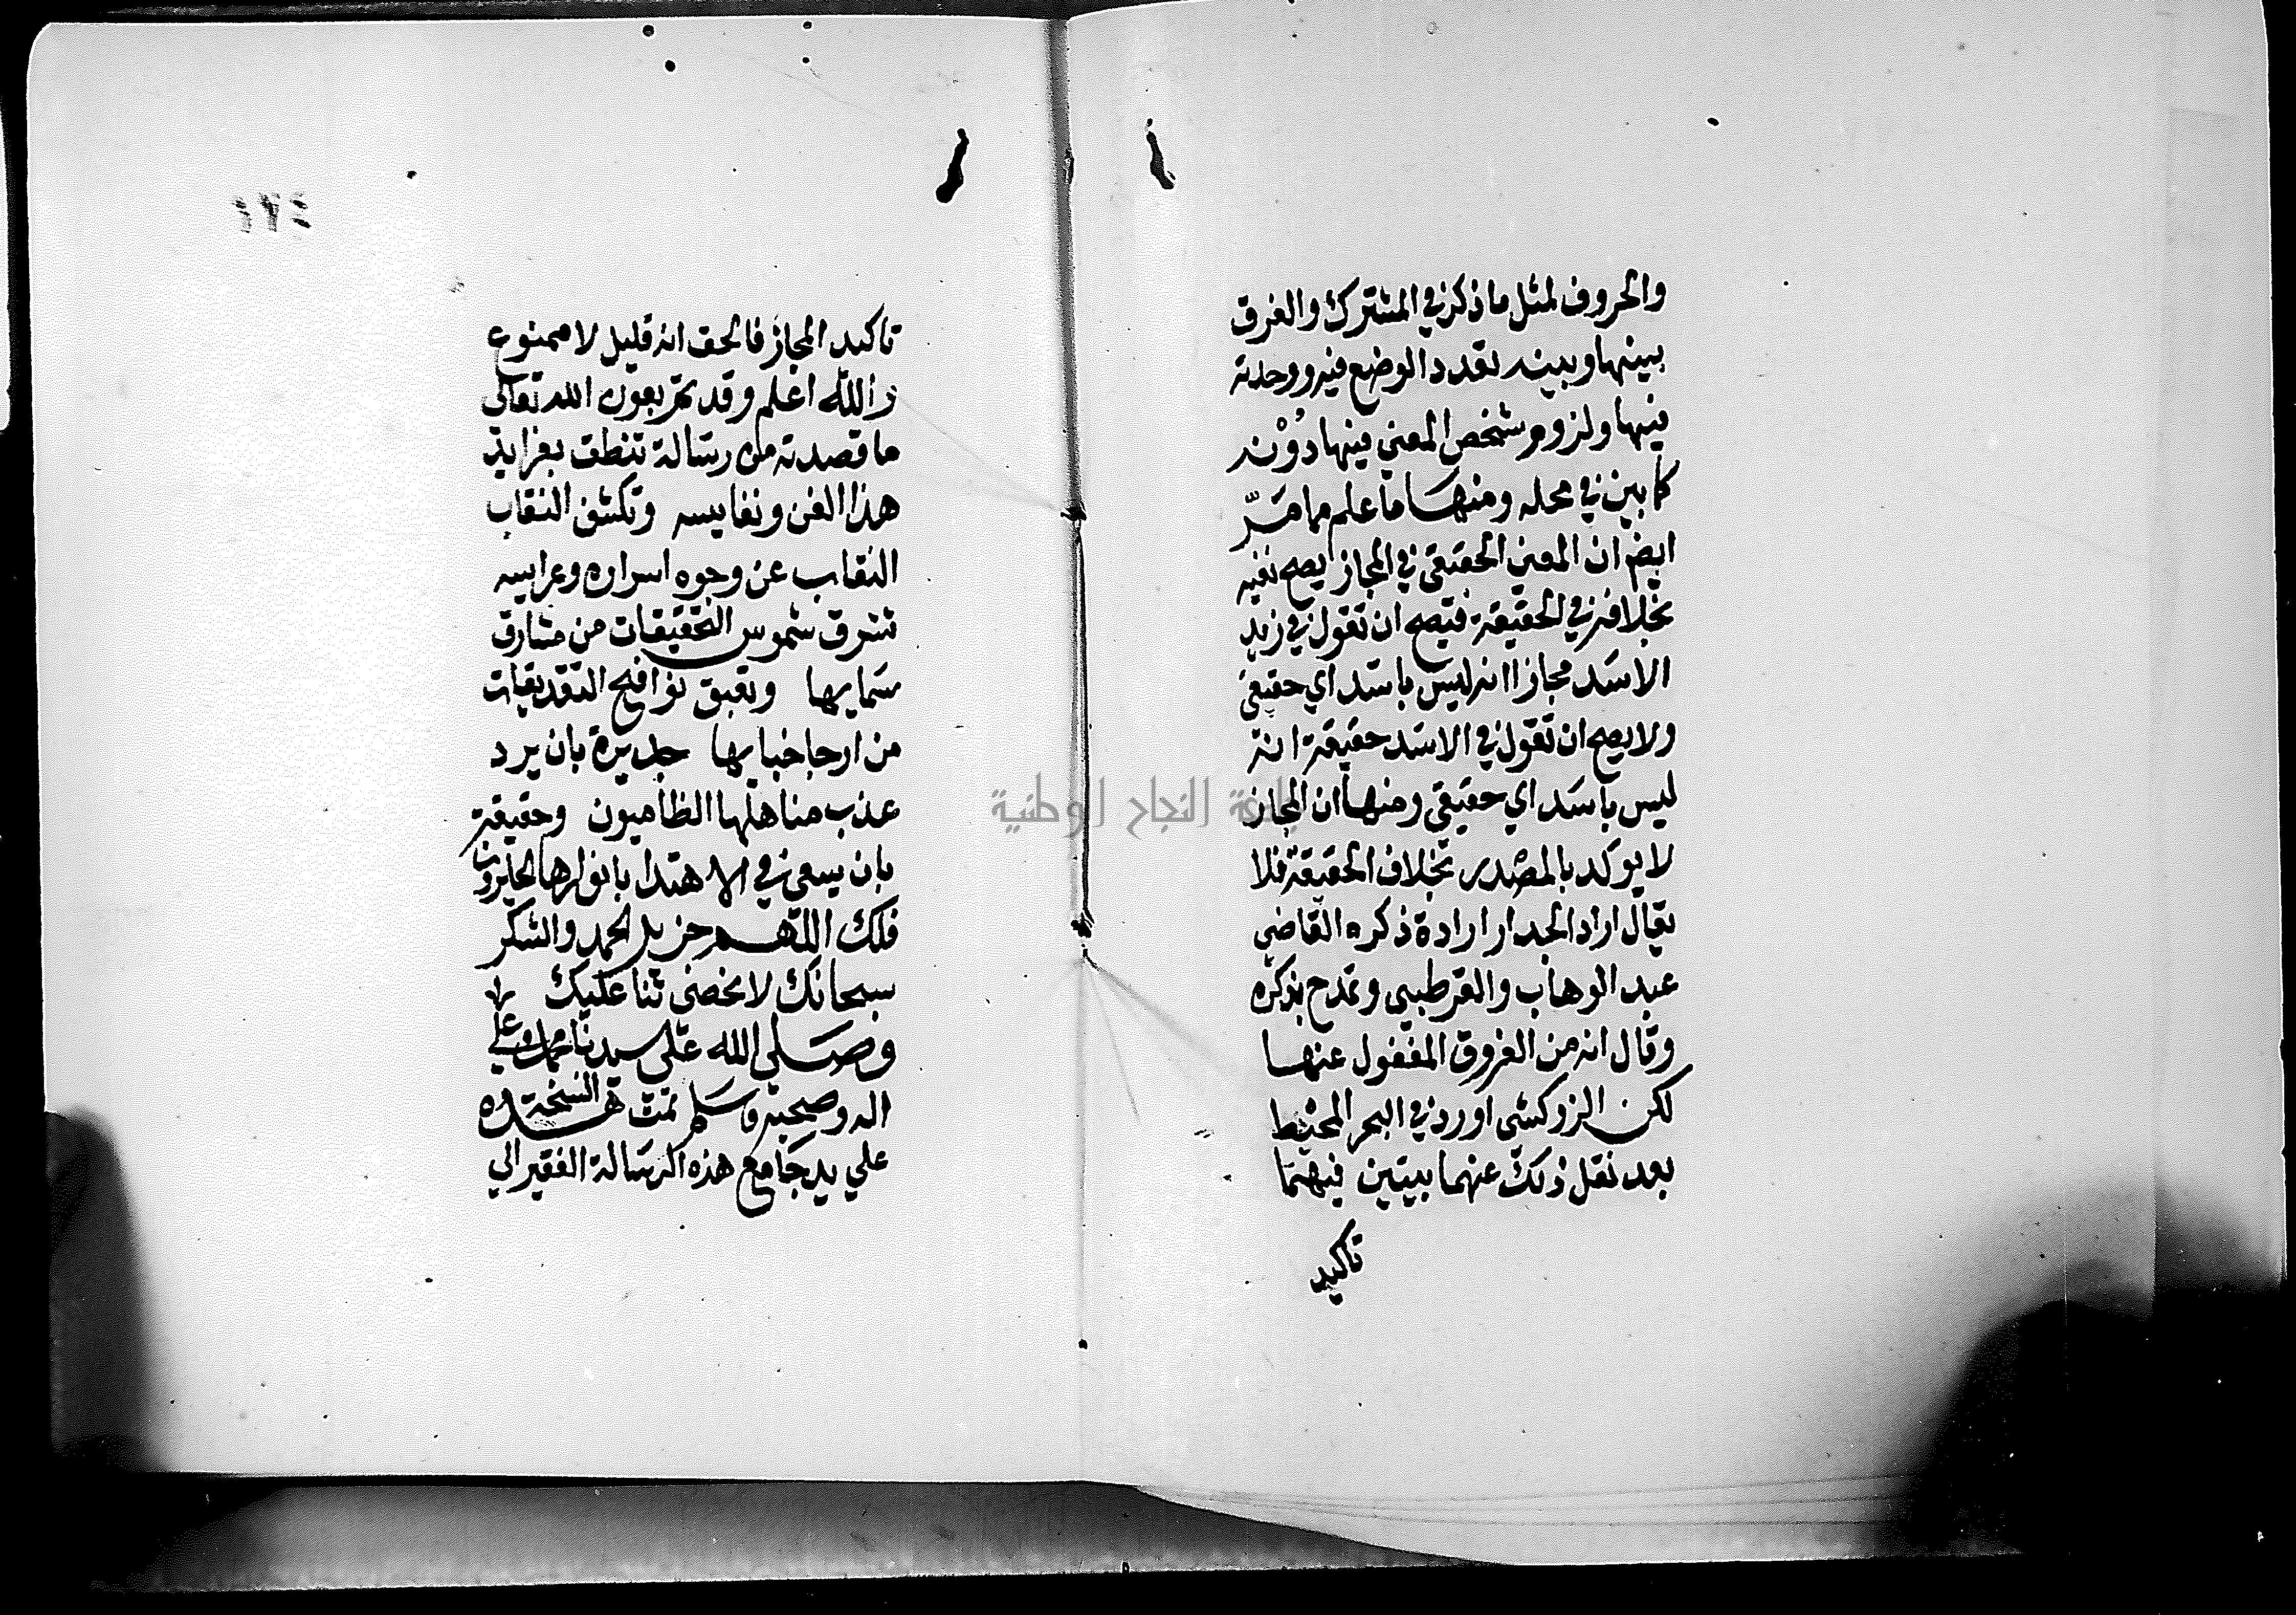 والحروف لمثل ما ذكر في المشترك والفرق
بينها وبينه تعدد الوضع فيه ووحدته
فيها ولزوم شخص المعني فيها دونه
كما بين في محله ومنها ما علم مما مر
ايضا ان المعني الحقيقي في المجاز يصح نفيه
بخلافه في الحقيقة فيصح ان تقول في زيد
الاسد مجازا انه ليس باسد اي حقيقي
ولا يصح ان تقول في الاسد حقيقة انه
ليس باسد اي حقيقي ومنها ان المجاز
لا يوكد بالمصدر بخلاف الحقيقة فلا
يقال اراد الجدار ارادة ذكره القاضي
عبد الوهاب والقرطبي وتمدح بذكره
وقال انه من الفروق المغفول عنها
لكن الزركشي اورد في البحر المحيط
بعد نقل ذلك عنهما بيتين فيهما
تاكيد
١٧٤
تاكيد المجاز فالحق انه قليل لا ممنوع
والله اعلم وقد تم بعون الله تعالى
ما قصدته من رسالة تنطق بفرايد
هذا الفن ونفايسه وتكشف النقاب
النقاب عن وجوه اسراره وعرايسه
تشرق شموس التحقيقات من مشارق
سمايها وتعبق نوافح التدقيقات
من ارجا خبايها جديرة بان يرد
عذب مناهلها الظاميون وحقيقة
بان يسعى في الاهتدا بانوارها الحايرون
فلك اللهم جزيل الحمد والشكر
سبحانك لا نحصى ثنا عليك
وصلى الله على سيدنا محمد وعلي
اله وصحبه وسلم تمت هذه النسخة
علي يد جامع هذه الرسالة الفقير الي
جامعة النجاح الوطنية